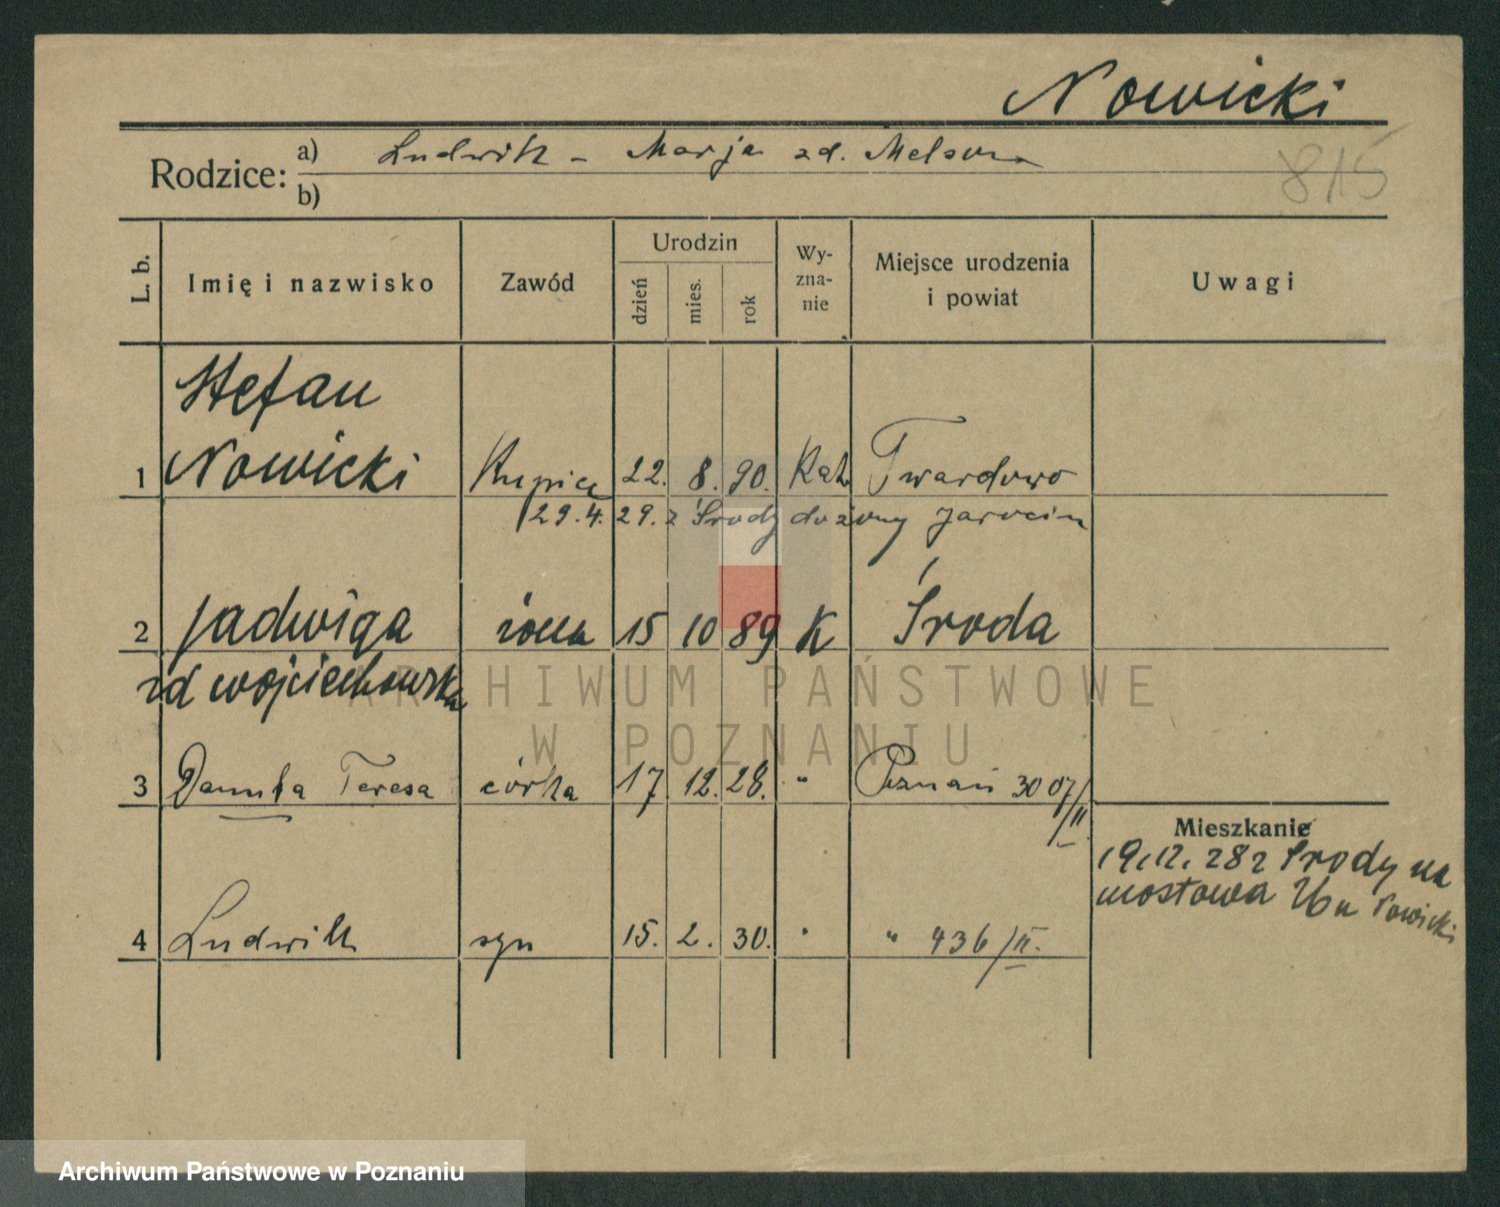 Nowicki
Rodzice: a) Ludwik - Marja zd.
b)
815
L. b. Imię i nazwisko Zawód Urodzin dzień mies. rok Wyznanie Miejsce urodzenia i powiat Uwagi
Stefan
1 Nowicki Kupiec 22. 8. 90. Kat. Twardowo
29.4.29. z Środy do żony Jarocin
2 Jadwiga żona 15 10 89 K Środa
zd Wojciechowska
ARCHIWUM PAŃSTWOWE
W POZNANIU
3 Danuta Teresa córka 17. 12. 28. " Poznań 3007/II
Mieszkanie
19.12.28 z Środy na
mostowa 26 u Nowicki
4 Ludwik syn 15. 2. 30. " " 436/II.
Archiwum Państwowe w Poznaniu